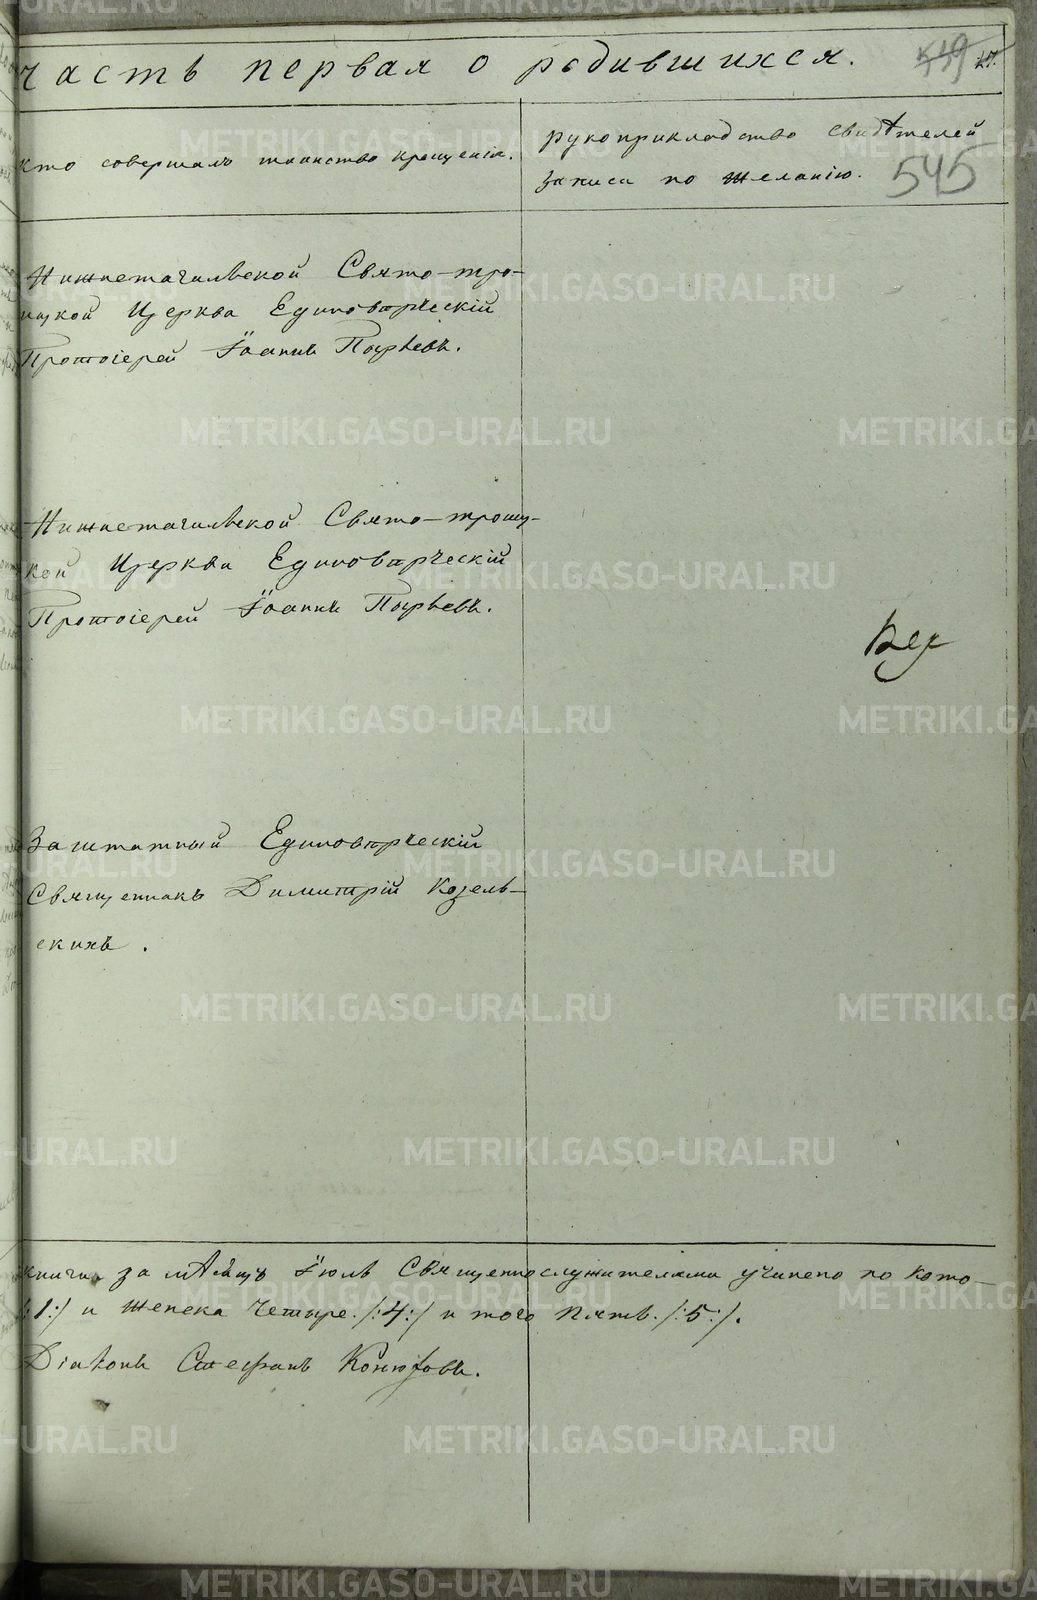 часть первая о родившихся.
545
кто совершалъ таинство крещенія.
рукоприкладство свидѣтелей
записи по желанію.
Нижнетагильской Свято-тро-
ицкой Церкви Единовѣрческій
Протоіерей Іоаннъ Пырьевъ.
Нижнетагильской Свято-троиц-
кой Церкви Единовѣрческій
Протоіерей Іоаннъ Пырьевъ.
Заштатный Единовѣрческій
Священникъ Димитрій Козель-
скихъ.
книги за мѣсяцъ Іюль Священнослужителями учинено по кото-
/:1:/ и женска четыре. /:4:/ и того пять. /:5:/.
Діаконъ Стефанъ Конюховъ.
METRIKI.GASO-URAL.RU